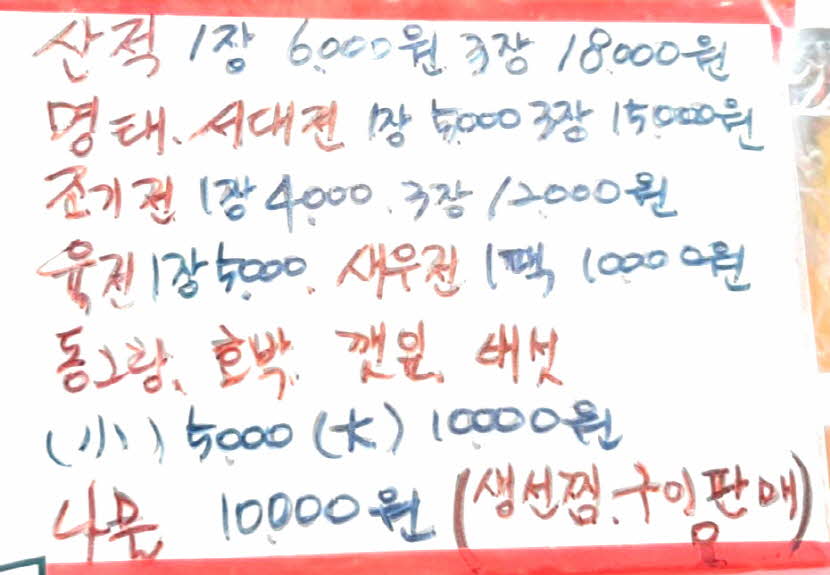 산적 1장 6,000원 3장 18000원
명태. 서대전 1장 5,000 3장 15,000원
조기전 1장 4000. 3장 12000원
육전 1장 5,000. 새우전 1팩 10000원
동그랑. 호박. 깻잎. 버섯
(小) 5000 (大) 10000원
나물 10000원 (생선찜.구이 판매)